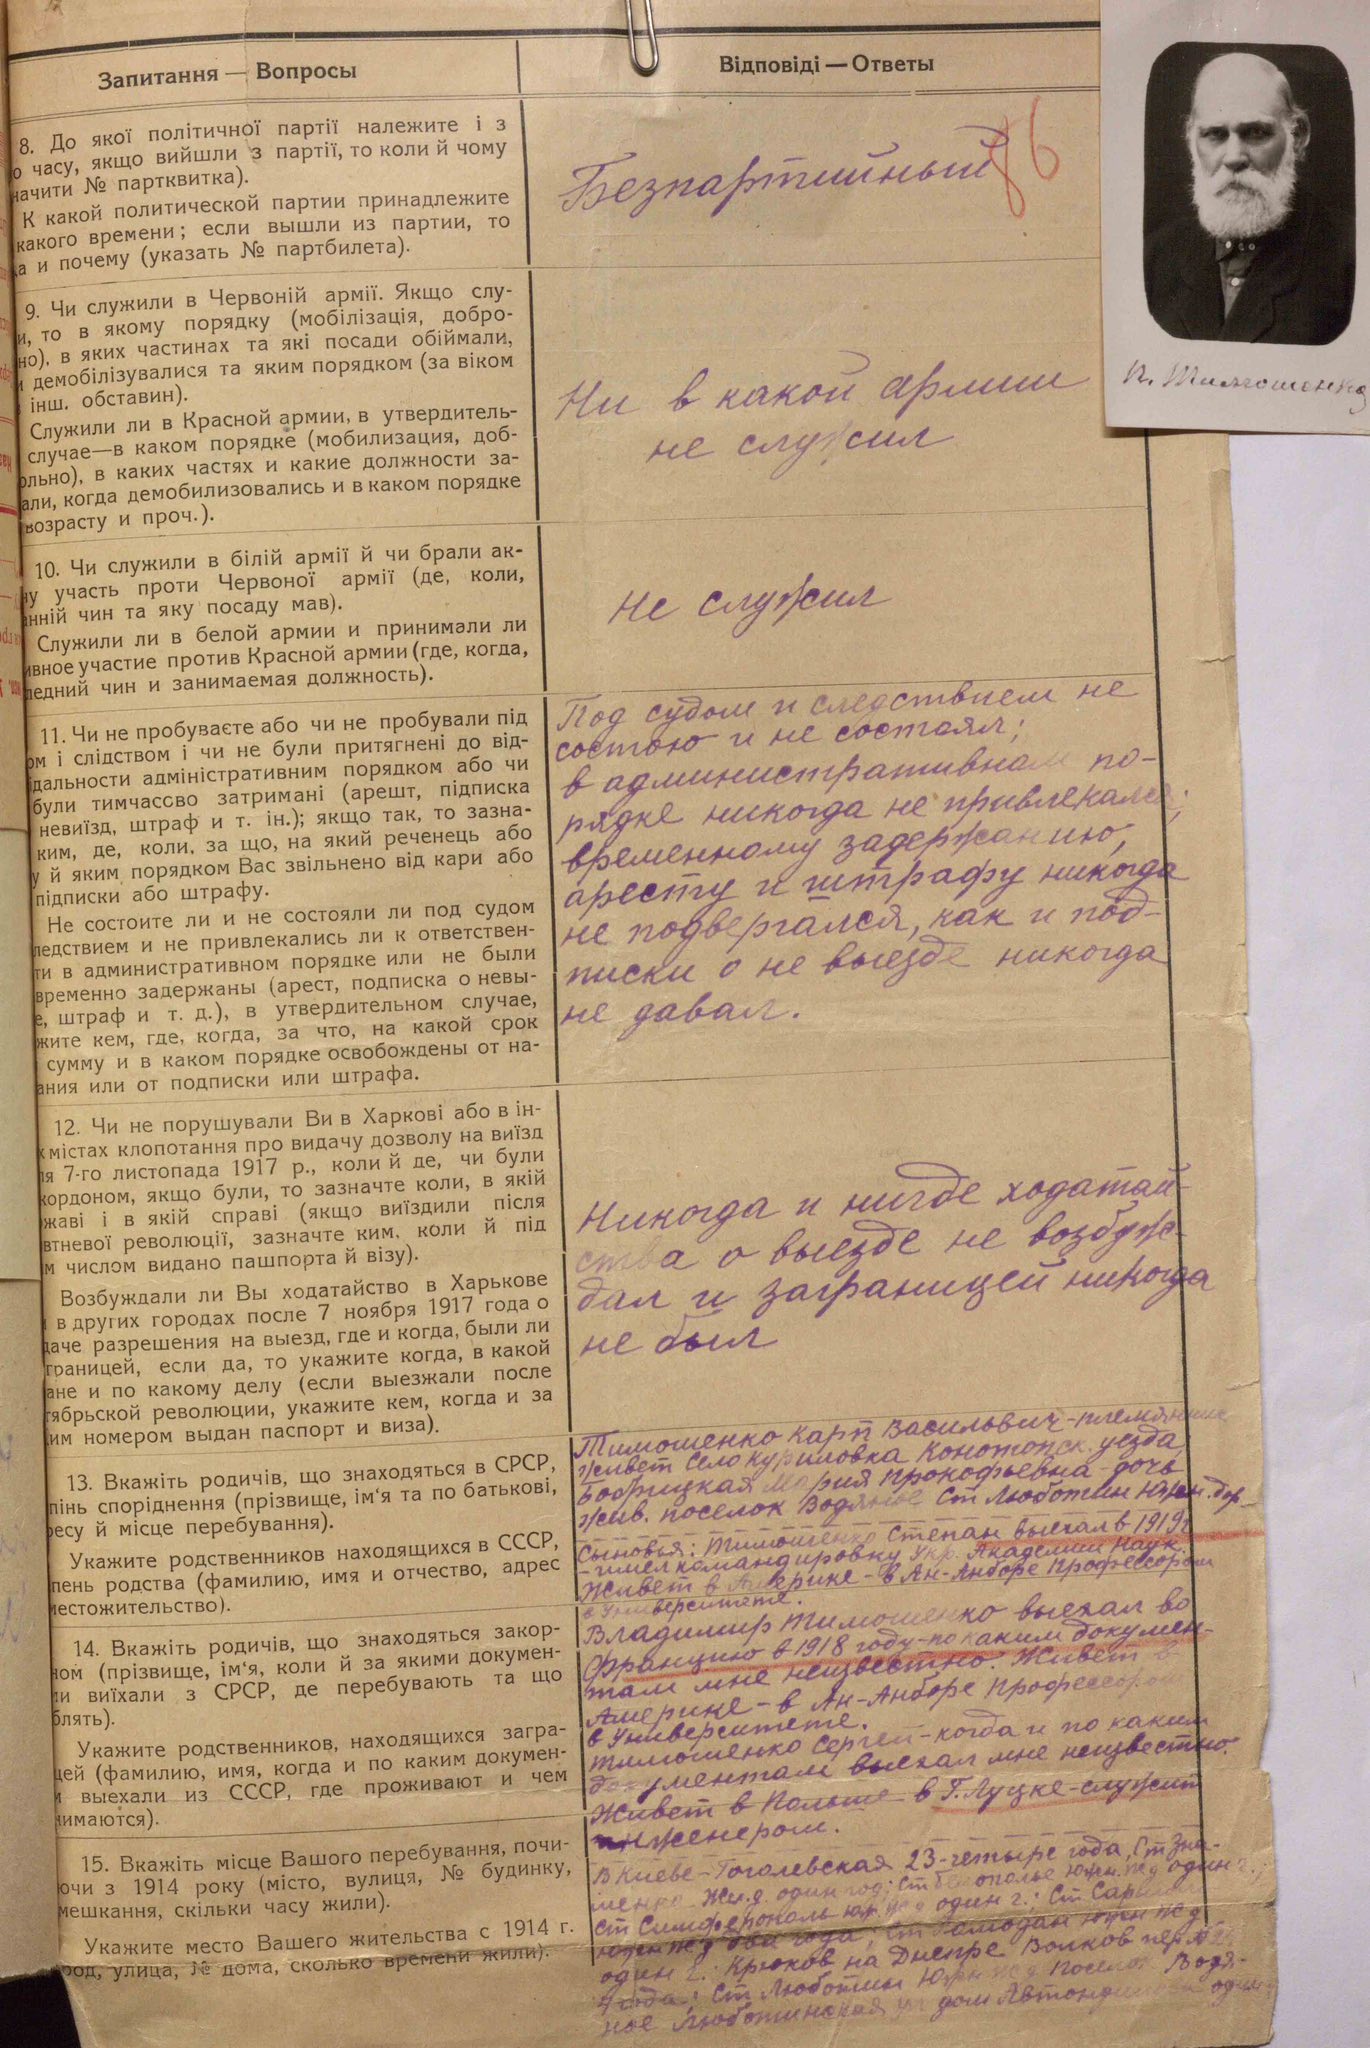 Запитання — Вопросы
Відповіді — Ответы
8. До якої політичної партії належите і з
о часу, якщо вийшли з партії, то коли й чому
начити № партквитка).
К какой политической партии принадлежите
какого времени; если вышли из партии, то
да и почему (указать № партбилета).
Безпартийный
86
П. Тимошенко
9. Чи служили в Червоній армії. Якщо слу-
и, то в якому порядку (мобілізація, добро-
но), в яких частинах та які посади обіймали,
демобілізувалися та яким порядком (за віком
інш. обставин).
Служили ли в Красной армии, в утвердитель-
случае—в каком порядке (мобилизация, доб-
ольно), в каких частях и какие должности за-
али, когда демобилизовались и в каком порядке
возрасту и проч.).
Ни в какой армии
не служил
10. Чи служили в білій армії й чи брали ак-
ну участь проти Червоної армії (де, коли,
анній чин та яку посаду мав).
Служили ли в белой армии и принимали ли
ивное участие против Красной армии (где, когда,
ледний чин и занимаемая должность).
Не служил
11. Чи не пробуваєте або чи не пробували під
ом і слідством і чи не були притягнені до від-
дальности адміністративним порядком або чи
були тимчасово затримані (арешт, підписка
невиїзд, штраф и т. ін.); якщо так, то зазна-
ким, де, коли, за що, на який реченець або
у й яким порядком Вас звільнено від кари або
підписки або штрафу.
Не состоите ли и не состояли ли под судом
ледствием и не привлекались ли к ответствен-
ти в административном порядке или не были
временно задержаны (арест, подписка о невы-
е, штраф и т. д.), в утвердительном случае,
жите кем, где, когда, за что, на какой срок
сумму и в каком порядке освобождены от на-
ания или от подписки или штрафа.
Под судом и следствием не
состою и не состоял;
в административном по-
рядке никогда не привлекался;
временному задержанию,
аресту и штрафу никогда
не подвергался, как и под-
писки о не выезде никогда
не давал.
12. Чи не порушували Ви в Харкові або в ін-
х містах клопотання про видачу дозволу на виїзд
ля 7-го листопада 1917 р., коли й де, чи були
кордоном, якщо були, то зазначте коли, в якій
жаві і в якій справі (якщо виїздили після
втневої революції, зазначте ким, коли й під
м числом видано пашпорта й візу).
Возбуждали ли Вы ходатайство в Харькове
в других городах после 7 ноября 1917 года о
даче разрешения на выезд, где и когда, были ли
границей, если да, то укажите когда, в какой
ане и по какому делу (если выезжали после
тябрьской революции, укажите кем, когда и за
им номером выдан паспорт и виза).
Никогда и нигде ходатай-
ства о выезде не возбуж-
дал и заграницей никогда
не был
13. Вкажіть родичів, що знаходяться в СРСР,
пінь споріднення (прізвище, ім'я та по батькові,
ресу й місце перебування).
Укажите родственников находящихся в СССР,
пень родства (фамилию, имя и отчество, адрес
местожительство).
Тимошенко Карп Василович-племянник
живет село Куриловка Конотопск. уезда
Бобрицкая Мария Прокофьевна-дочь
жив. поселок Водяное Ст Люботин Южн. дор.
14. Вкажіть родичів, що знаходяться закор-
ном (прізвище, ім'я, коли й за якими докумен-
и виїхали з СРСР, де перебувають та що
блять).
Укажите родственников, находящихся загра-
цей (фамилию, имя, когда и по каким докумен-
м выехали из СССР, где проживают и чем
нимаются).
Сыновья: Тимошенко Степан выехал в 1919 г
-имел командировку Укр. Академии Наук.
Живет в Америке-в Ан-Анборе Профессором
в Университете.
Владимир Тимошенко выехал во
Францию в 1918 году-по каким докумен-
там мне неизвестно. Живет в
Америке-в Ан-Анборе Профессором
в Университете.
Тимошенко Сергей-когда и по каким
документам выехал мне неизвестно.
Живет в Польше в г. Луцке-служит
инженером.
15. Вкажіть місце Вашого перебування, почи-
ючи з 1914 року (місто, вулиця, № будинку,
мешкання, скільки часу жили).
Укажите место Вашего жительства с 1914 г.
род, улица, № дома, сколько времени жили).
В Киеве-Гоголевская 23-четыре года, Ст Зна-
менка Ж.д. один год; Ст один г.;
Ст Симферополь Юж. ж д один г.; Ст Сарны
Южн ж д два года, Ст Ромодан Южн ж д
один г. Крюков на Днепре Волков пер №
4 года; Ст Люботин Южн ж д Поселок Водя-
ное Люботинская дом один